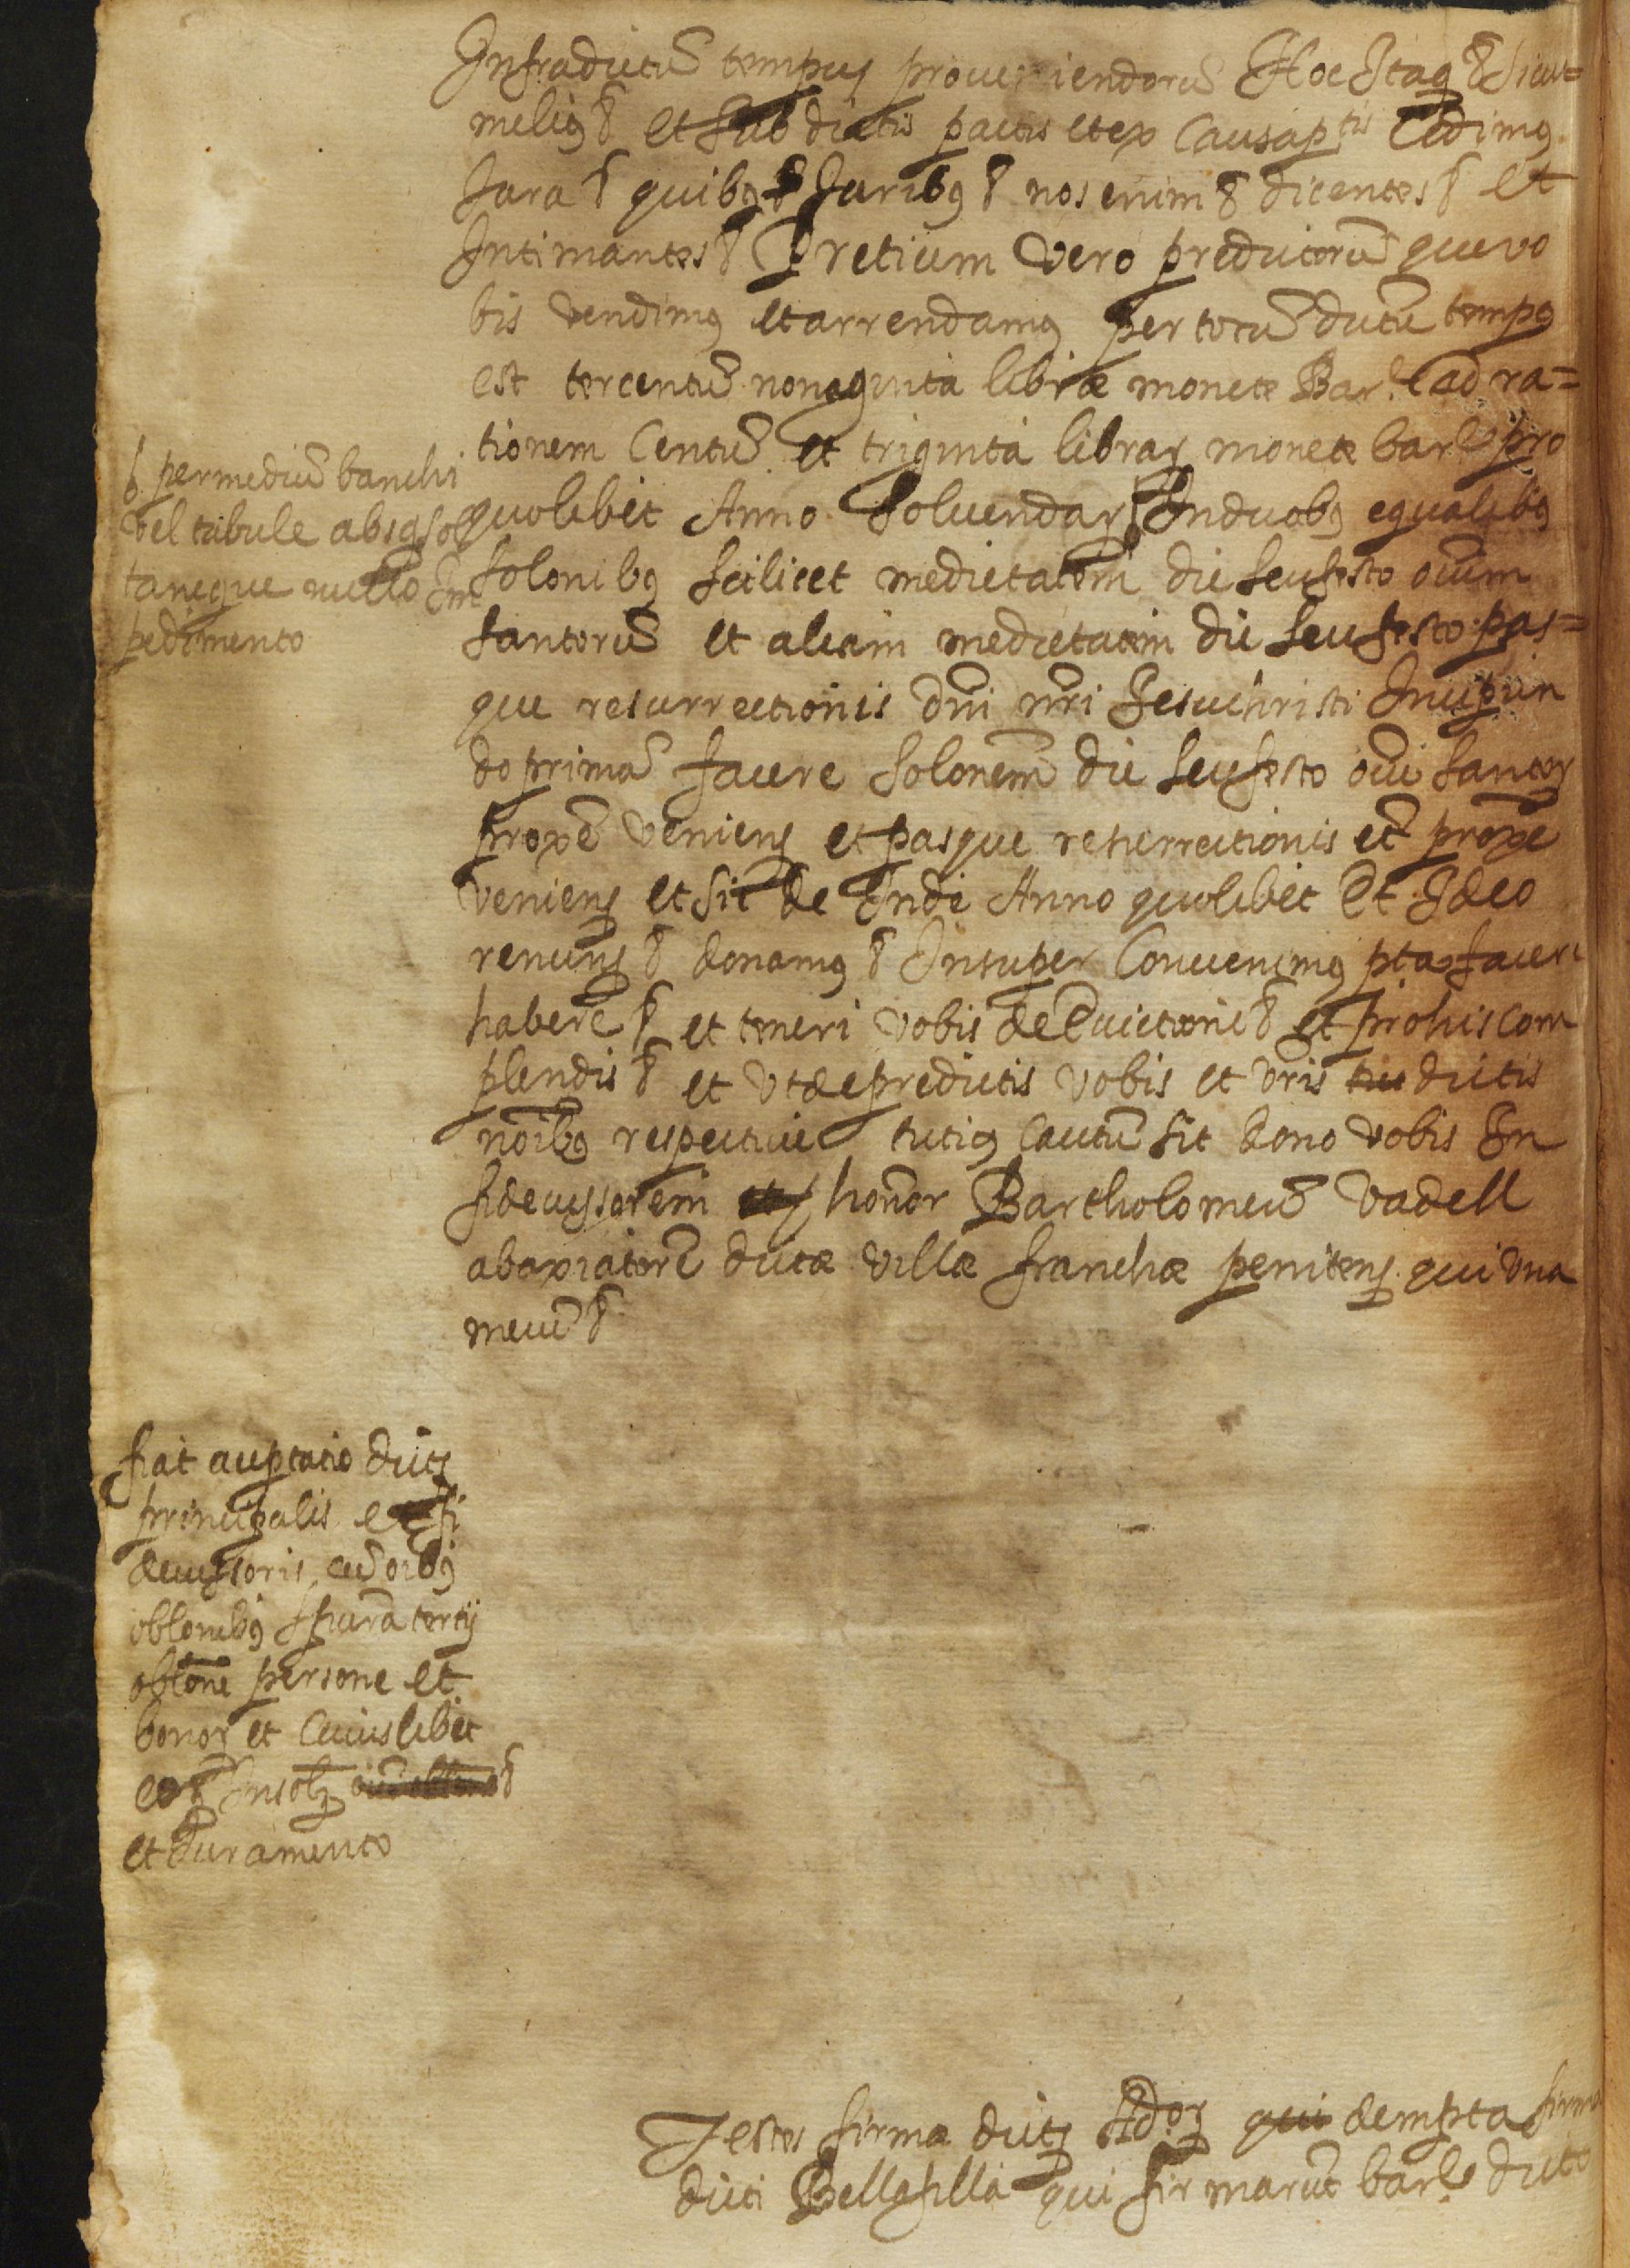 Infradictũ tempus proueniendorũ Hoc Itaq & Sicut=
melius & et sub dictis pactis et ex Causa ptis Cedimus
Jura & quibus & Juribus & nos enim & dicentes & et
Intimantes & Pretium vero predictorũ que vo
bis vendimus et arrendamus per totũ dictũ tempus
est tercentũ nonaginta libræ monetæ Bar.e ad ra=
tionem Centũ et triginta librar monetæ bar.e pro
quolibet Anno Soluendar In duobus equalibus
solonibus scilicet medietatem die seu festo oium
santorũ et aliam medietatem die seu festo pas=
que resurrectionis dñi nri Jesuchristi Incipien
do primã facere solonem die seu festo oium Santor
proxe veniens et pasque resurrectionis etiã proxe
veniens et sic de Inde Anno quolibet Et Ideo
renuns & donamus & Insuper Conuenimus pta facere
habere & et teneri vobis de Euictione & et pro his com
plendis & et vt de predictis vobis et vris dictis
noibus respectiue tutius Cautũ sit dono vobis In
fideiussorem honor Bartholomeũ Vadell
abaxiatorẽ dictæ villæ franchæ penitens qui vna
mecũ &
& per mediũ banchi
vel tabule absq sol
taneque nullo Im
pedimento
fiat acceptatio dicts
principalis et fi
deiussoris cũ oibus
oblonibus scriptura tertij
oblone persone et
bonor et Cuiuslibet
eor Insolz &
et Juramento
Testes firmæ dicts qui dempta firma
dicti Bellafilla qui firmarũt bar.e dict